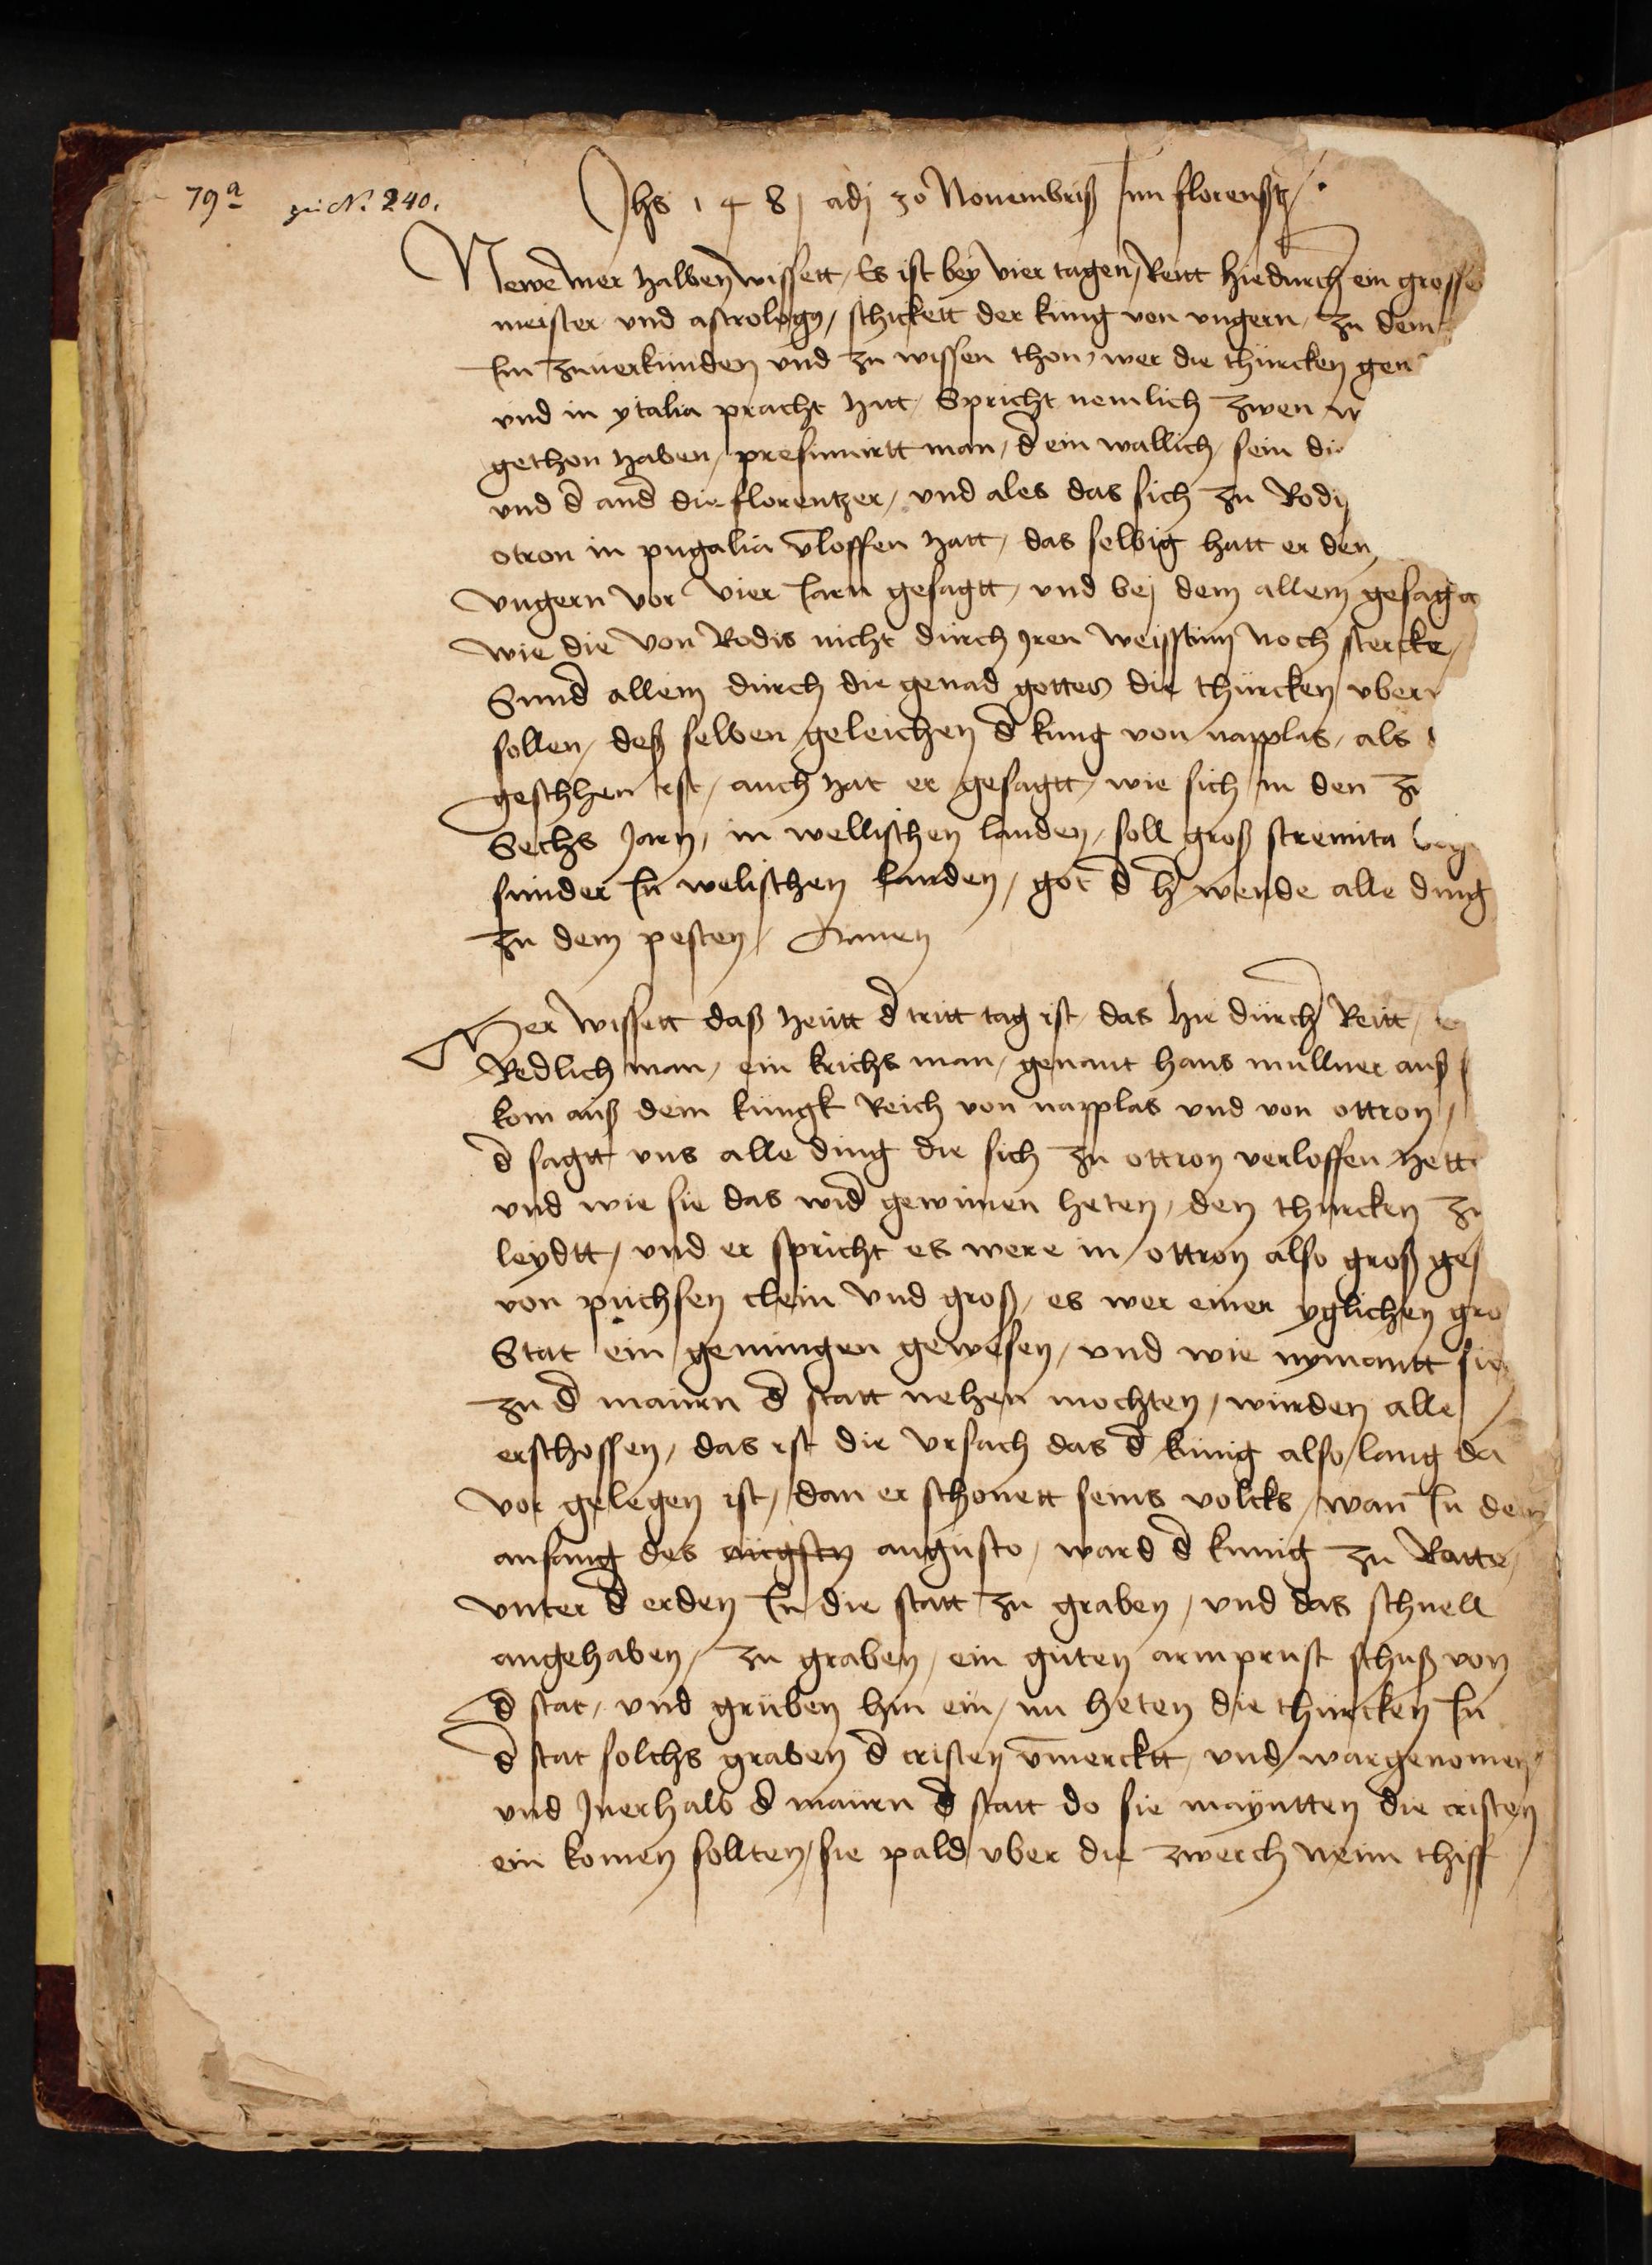 79a zu N. 240.
Jhs 1481 adj 30 Nouembriß Inn florenßtz
Newe mer halben wissett / Es ist bey vier tagen / Reitt hiedurch ein grosse
meister vnd astrologus / schickett der kung von vngern / zu dem
Im zuuerkunden vnd zu wissen thon / wer die thurcken gen
vnd in ytalia pracht hatt / Spricht nemlich zwen
gethon haben / presimirtt man / d ein wallich / sein die
vnd d and die florentzer / vnd ales das sich zu Rodis
otron in pugalia v̄loffen hatt / das selbig hatt er den
vngern vor vier Iarn gesagtt / vnd bej dem allem gesagt
wie die von Rodis nicht durch jren weissttum noch stercke /
Sund allein durch die genad gottes die thurcken vber
sollen / deß selben geleichen d kung von napplas / als
geschhen ist / auch hat er gesagtt / wie sich in den
Sechs Jarn / in wellischen landen / soll groß stremita
sunder In welischen landen / got d h wende alle ding
zu dem pesten / Amen
Mer wissett daß heutt d tritt tag ist / das hie durch Reitt /
Redlich man / ein krichs man / genant hans mullner auß
kom auß dem kungk Reich von napplas vnd von ottron /
d sagtt vns alle ding die sich zu ottron verloffen hett
vnd wie sie das wid gewinen heten / den thurcken zu
leydtt / vnd er spricht es were in ottron also groß ges
von puchsen clein vnd groß / es wer einer yglichen gro
Stat ein genungen gewesen / vnd wie nymantt sie
zu d maurn d statt nehen mochten / wurden alle
erschossen / das ist die vrsach das d kunig also lang da
vor gelegen ist / dan er schonett seins volcks / wan In dem
anfang des augsten augusto / ward d kunig zu Ratte /
vnter d erden In die statt zu graben / vnd das schnell
angehaben / zu graben / ein guten armprust schuß von
d stat / vnd gruben hin ein / nu heten die thurcken In
d stat solchs graben d cristen v̄mercktt / vnd wargenomen /
vnd Jnerhalb d maurn d statt do sie mayntten die cristen
ein komen sollten / sie pald vber die zwerch neun thiff